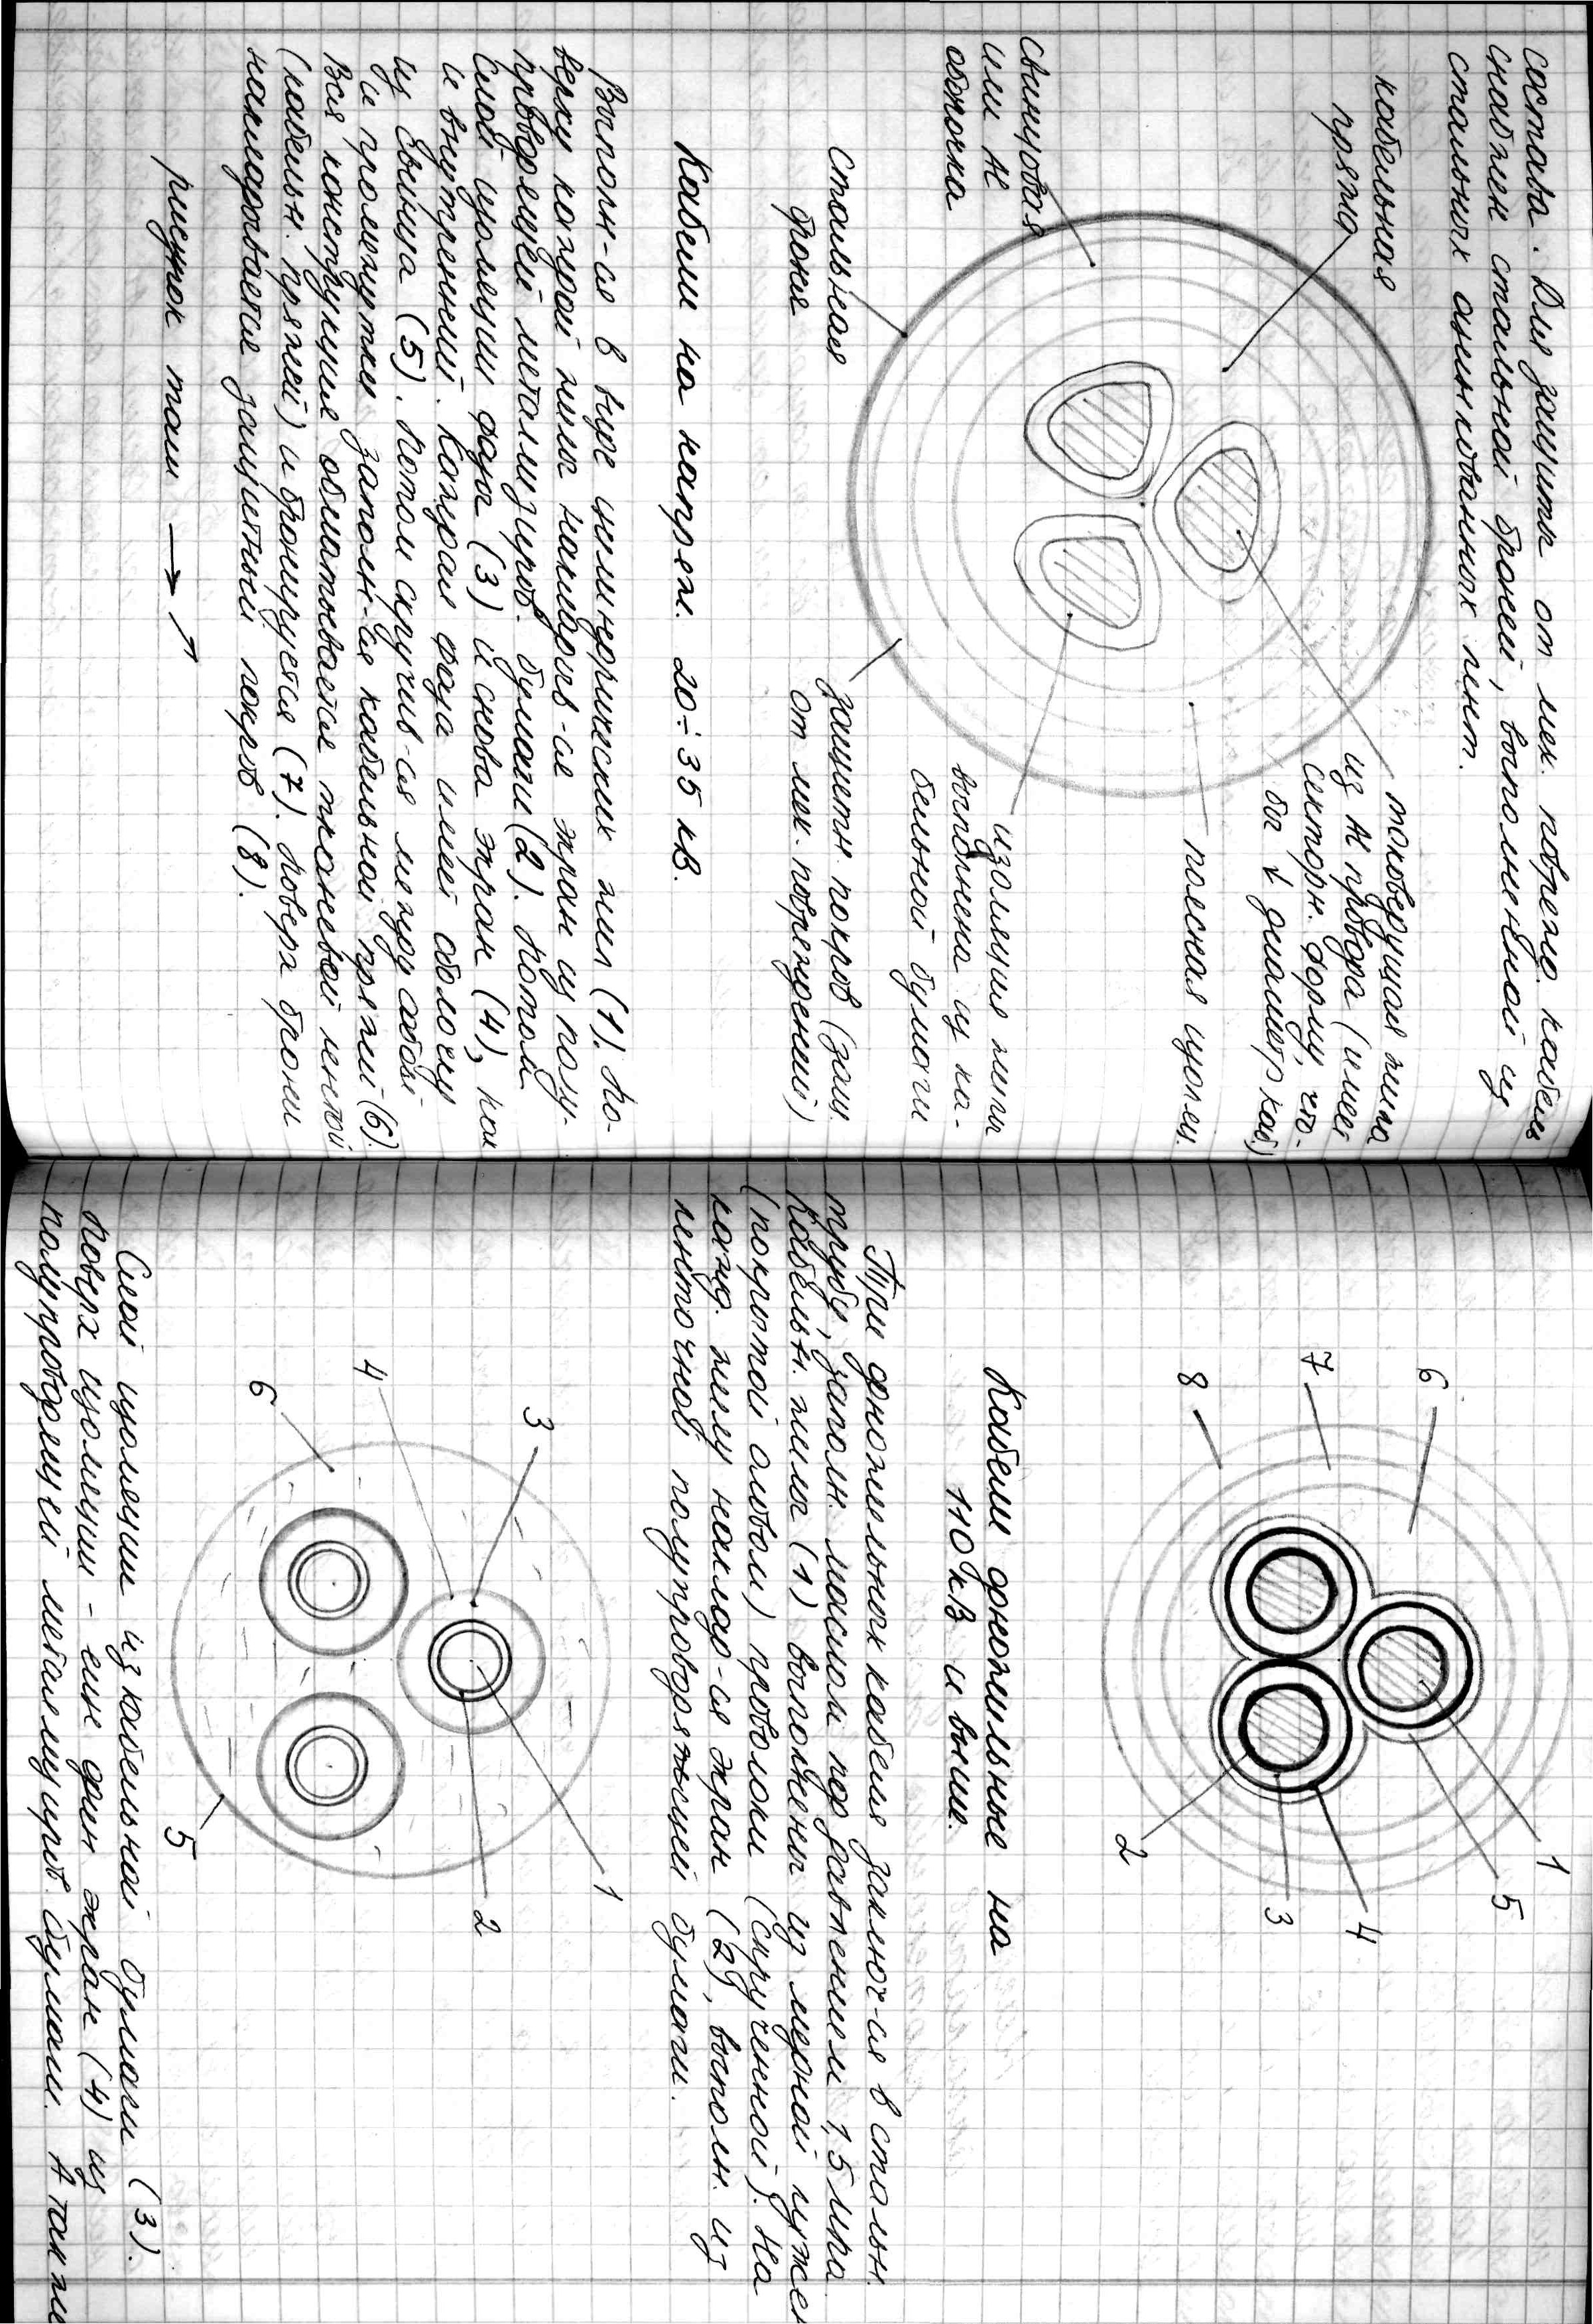 состава. Для защиты от мех. поврежд. кабель
снабжен стальной броней, выполненной из
стальных оцинкованных лент.
кабельная
пряжа
свинцовая
или Al
оболочка
стальная
броня
токоведущая жила
из Al провода (имеет
секторн. форму, что-
бы ↓ диаметр каб.)
поясная изоляц.
изоляция жилы
выполнена из ка-
бельной бумаги
защитн. покров (защ.
от мех. повреждений)
Кабели на напряж. 20÷35 кВ.
Выполн-ся в виде цилиндрических жил (1). По-
верху каждой жилы накладыв-ся экран из полу-
проводящей металлизиров. бумаги (2). Потом
слой изоляции фазы (3) и снова экран (4), как
и внутренний. Каждая фаза имеет оболочку
из свинца (5). Потом скручив-ся между собой
и промежутки заполн-ся кабельной пряжей (6).
Вся конструкция обматывается тканевой лентой
(кабельн. пряжей) и бронируется (7). Поверх брони
накладывается защитный покров (8).
рисунок там → ↗
6
7
8
1
5
4
3
2
Кабели одножильные на
110 кВ и выше.
Три одножильных кабеля заключ-ся в стальн.
трубу, заполн. маслом под давлением 1,5 мПа.
Кабельн. жилы (1) выполнены из медной луженой
(покрытой оловом) проволоки (скрученной). На
кажд. жилу наклад-ся экран (2), выполн. из
ленточной полупроводящей бумаги.
3
4
6
1
2
5
Слой изоляции из кабельной бумаги (3).
Поверх изоляции - еще один экран (4) из
полупроводящей металлизиров. бумаги. А также